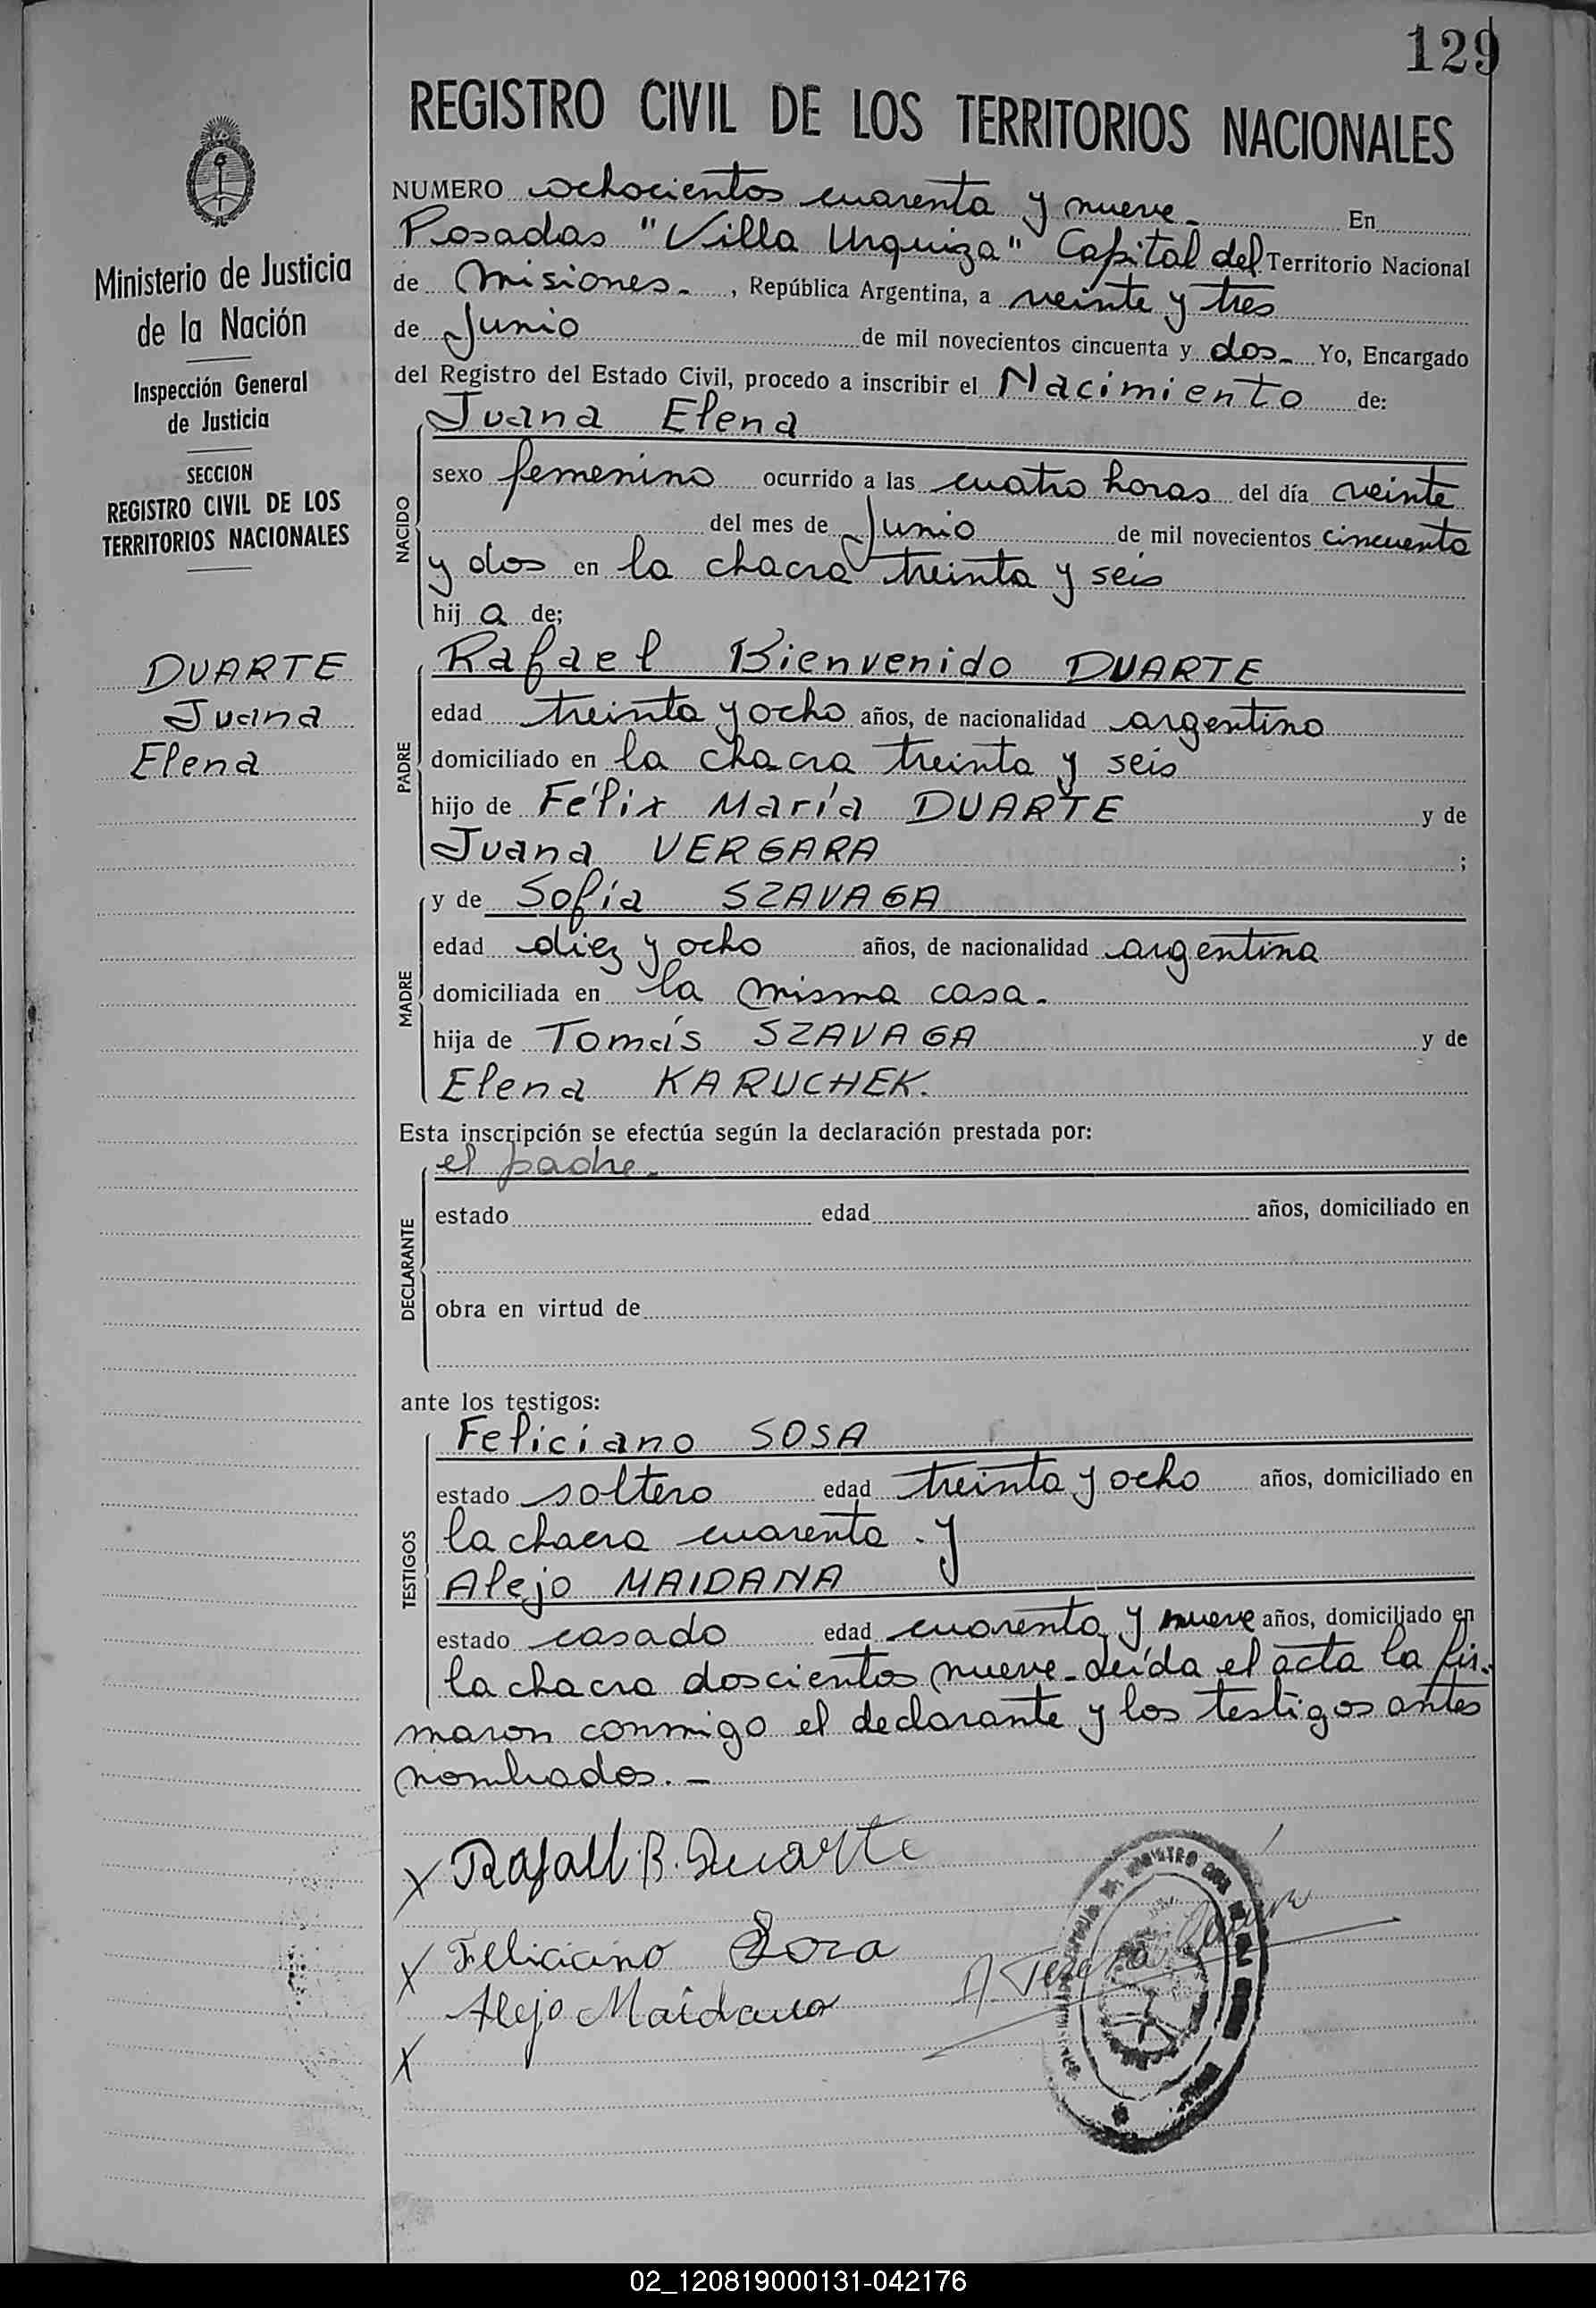 129
REGISTRO CIVIL DE LOS TERRITORIOS NACIONALES
Ministerio de Justicia
de la Nación
Inspección General
de Justicia
SECCION
REGISTRO CIVIL DE LOS
TERRITORIOS NACIONALES
DUARTE
Juana
Elena
NUMERO ochocientos cuarenta y nueve.- En
Posadas "Villa Urquiza" Capital del Territorio Nacional
de Misiones.-, República Argentina, a veinte y tres
de Junio de mil novecientos cincuenta y dos.- Yo, Encargado
del Registro del Estado Civil, procedo a inscribir el Nacimiento de:
NACIDO
Juana Elena
sexo femenino ocurrido a las cuatro horas del día veinte
del mes de Junio de mil novecientos cincuenta
y dos en la chacra treinta y seis
hij a de;
PADRE
Rafael Bienvenido DUARTE
edad treinta y ocho años, de nacionalidad argentino
domiciliado en la chacra treinta y seis
hijo de Félix María DUARTE y de
Juana VERGARA ;
MADRE
y de Sofía SZAVAGA
edad diez y ocho años, de nacionalidad argentina
domiciliada en la misma casa.
hija de Tomás SZAVAGA y de
Elena KARUCHEK.
Esta inscripción se efectúa según la declaración prestada por:
DECLARANTE
el padre.
estado edad años, domiciliado en
obra en virtud de
ante los testigos:
TESTIGOS
Feliciano SOSA
estado soltero edad treinta y ocho años, domiciliado en
la chacra cuarenta . y
Alejo MAIDANA
estado casado edad cuarenta y nueve años, domiciliado en
la chacra doscientos nueve - Leída el acta la fir-
maron conmigo el declarante y los testigos antes
nombrados. -
x Rafaell B. Duarte
x Feliciano Sosa
Alejo Maidana
x
02_120819000131-042176